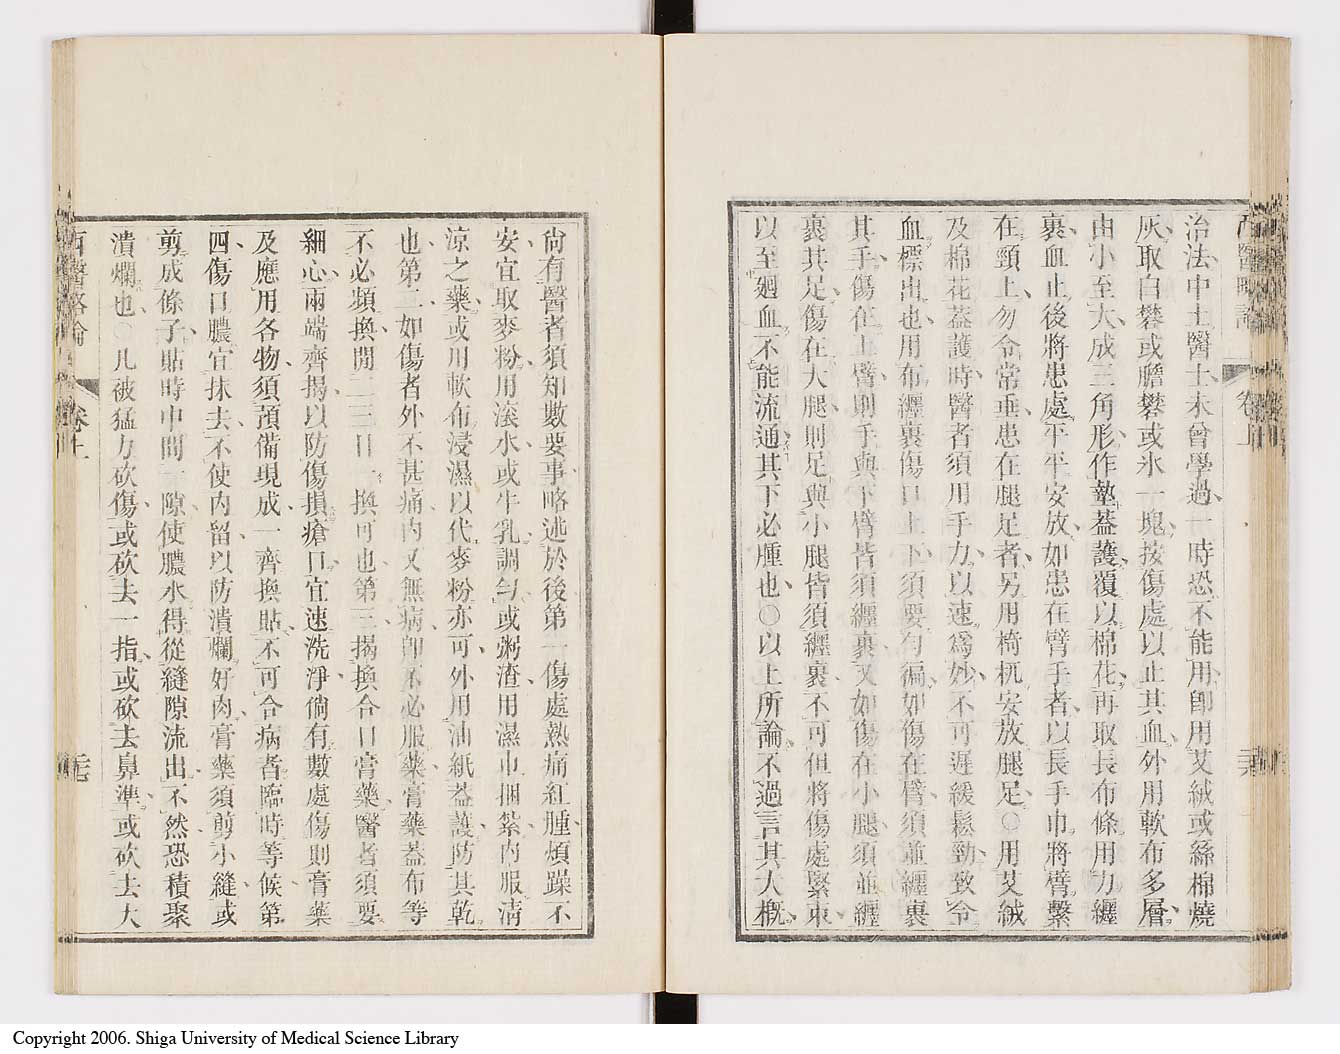 西醫略論 卷上 三六
治法中土醫士未曾學過一時恐不能用卽用艾絨或絲棉燒
灰取白礬或膽礬或氷一塊按傷處以止其血外用軟布多層
由小至大成三角形作墊葢護覆以棉花再取長布條用力纏
裹血止後將患處平平安放如患在臂手者以長手巾將臂繫
在頸上勿令常垂患在腿足者另用椅杌安放腿足○用艾絨
及棉花葢護時醫者須用手力以速爲妙不可遲緩鬆勁致令
血標出也用布纏裹傷口上下須要勻徧如傷在臂須並纏裹
其手傷在上臂則手與下臂皆須纏裹又如傷在小腿須並纏
裹其足傷在大腿則足與小腿皆須纏裹不可但將傷處緊束
以至廻血不能流通其下必腫也○以上所論不過言其大槪
尙有醫者須知數要事略述於後第一傷處熱痛紅腫煩躁不
安宜取麥粉用滾水或牛乳調勻或粥渣用濕巾捆紮內服淸
凉之藥或用軟布浸濕以代麥粉亦可外用油紙葢護防其乾
也第二如傷者外不甚痛內又無病卽不必服藥膏藥葢布等
不必頻換閒二三日一換可也第三揭換合口膏藥醫者須要
細心兩端齊揭以防傷損瘡口宜速洗淨倘有數處傷則膏藥
及應用各物須預備現成一齊換貼不可合病者臨時等候第
四傷口膿宜抹去不使內留以防潰爛好肉膏藥須剪小縫或
剪成條子貼時中間一隙使膿水得從縫隙流出不然恐積聚
潰爛也○凡被猛力砍傷或砍去一指或砍去鼻準或砍去大
西醫略論 卷上
Copyright 2006. Shiga University of Medical Science Library